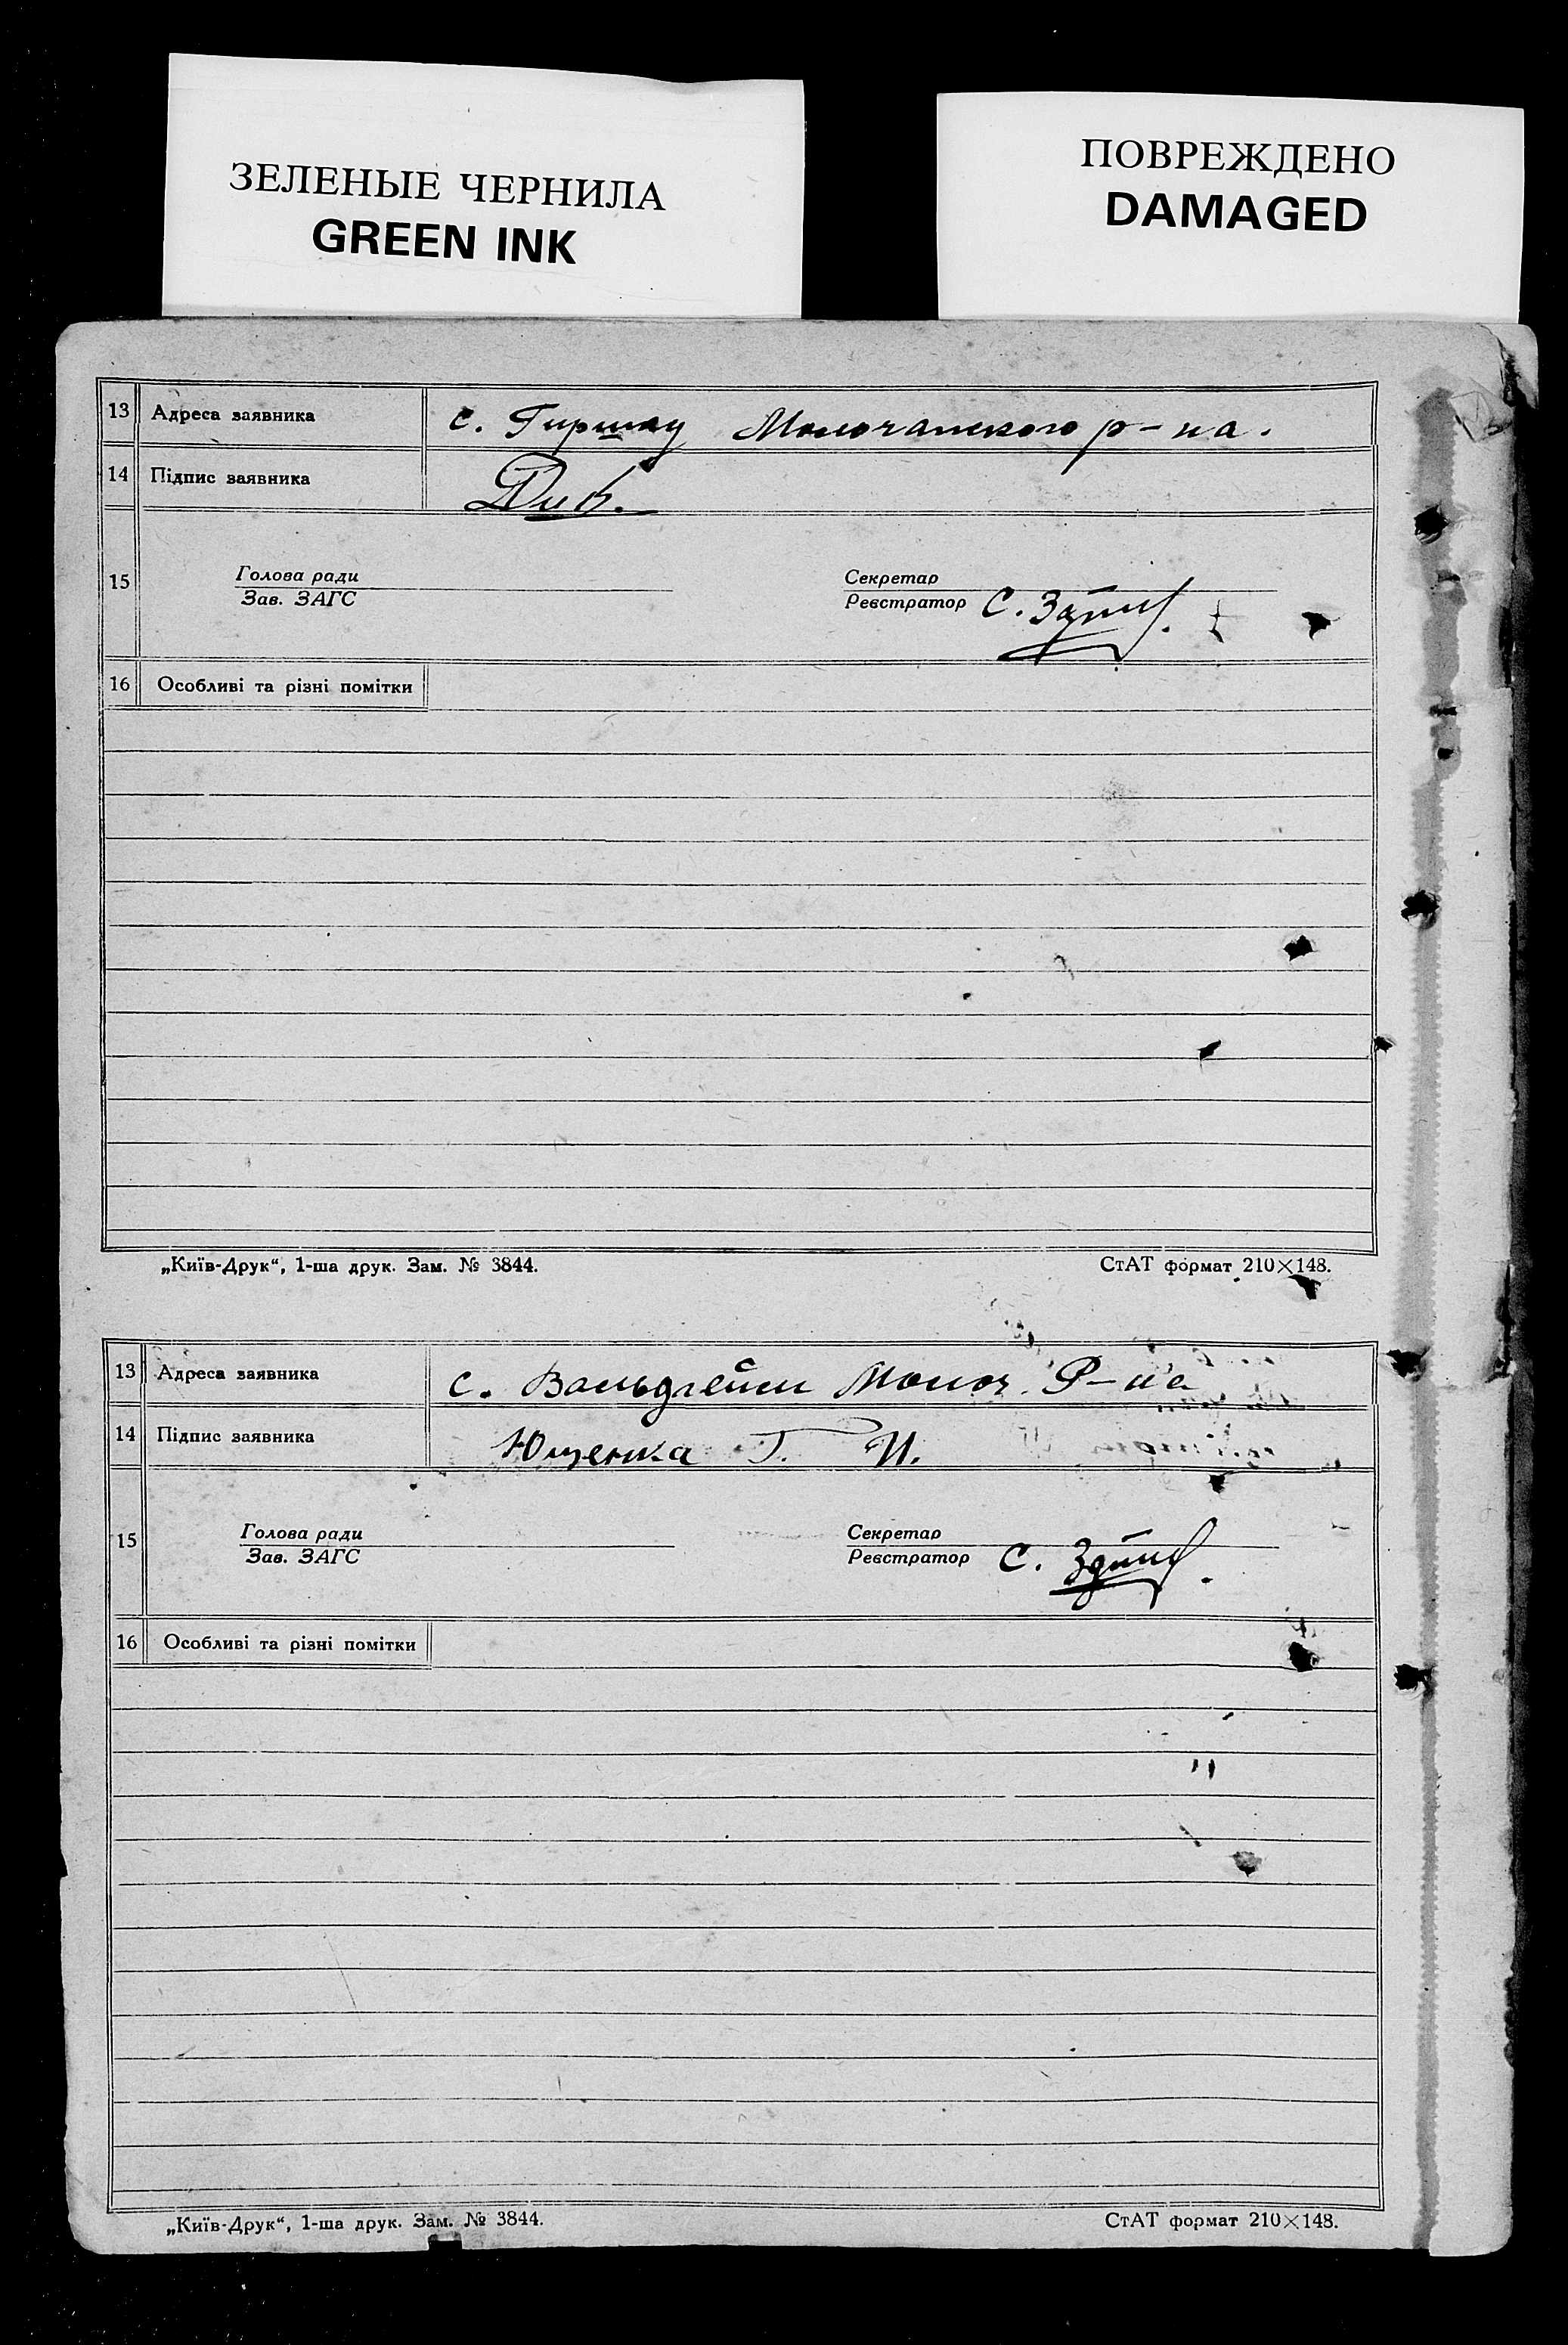 ЗЕЛЕНЫЕ ЧЕРНИЛА
GREEN INK
ПОВРЕЖДЕНО
DAMAGED
13 Адреса заявника с. Гиршау Молочанского р-на.
14 Підпис заявника
15 Голова ради Секретар
Зав. ЗАГС Реєстратор С.
16 Особливі та різні помітки
„Київ-Друк“, 1-ша друк. Зам. № 3844. СтАТ формат 210×148.
13 Адреса заявника с. Вальдгейм Молоч. Р-на
14 Підпис заявника Ющенка Г. И.
15 Голова ради Секретар
Зав. ЗАГС Реєстратор С.
16 Особливі та різні помітки
„Київ-Друк“, 1-ша друк. Зам. № 3844. СтАТ формат 210×148.